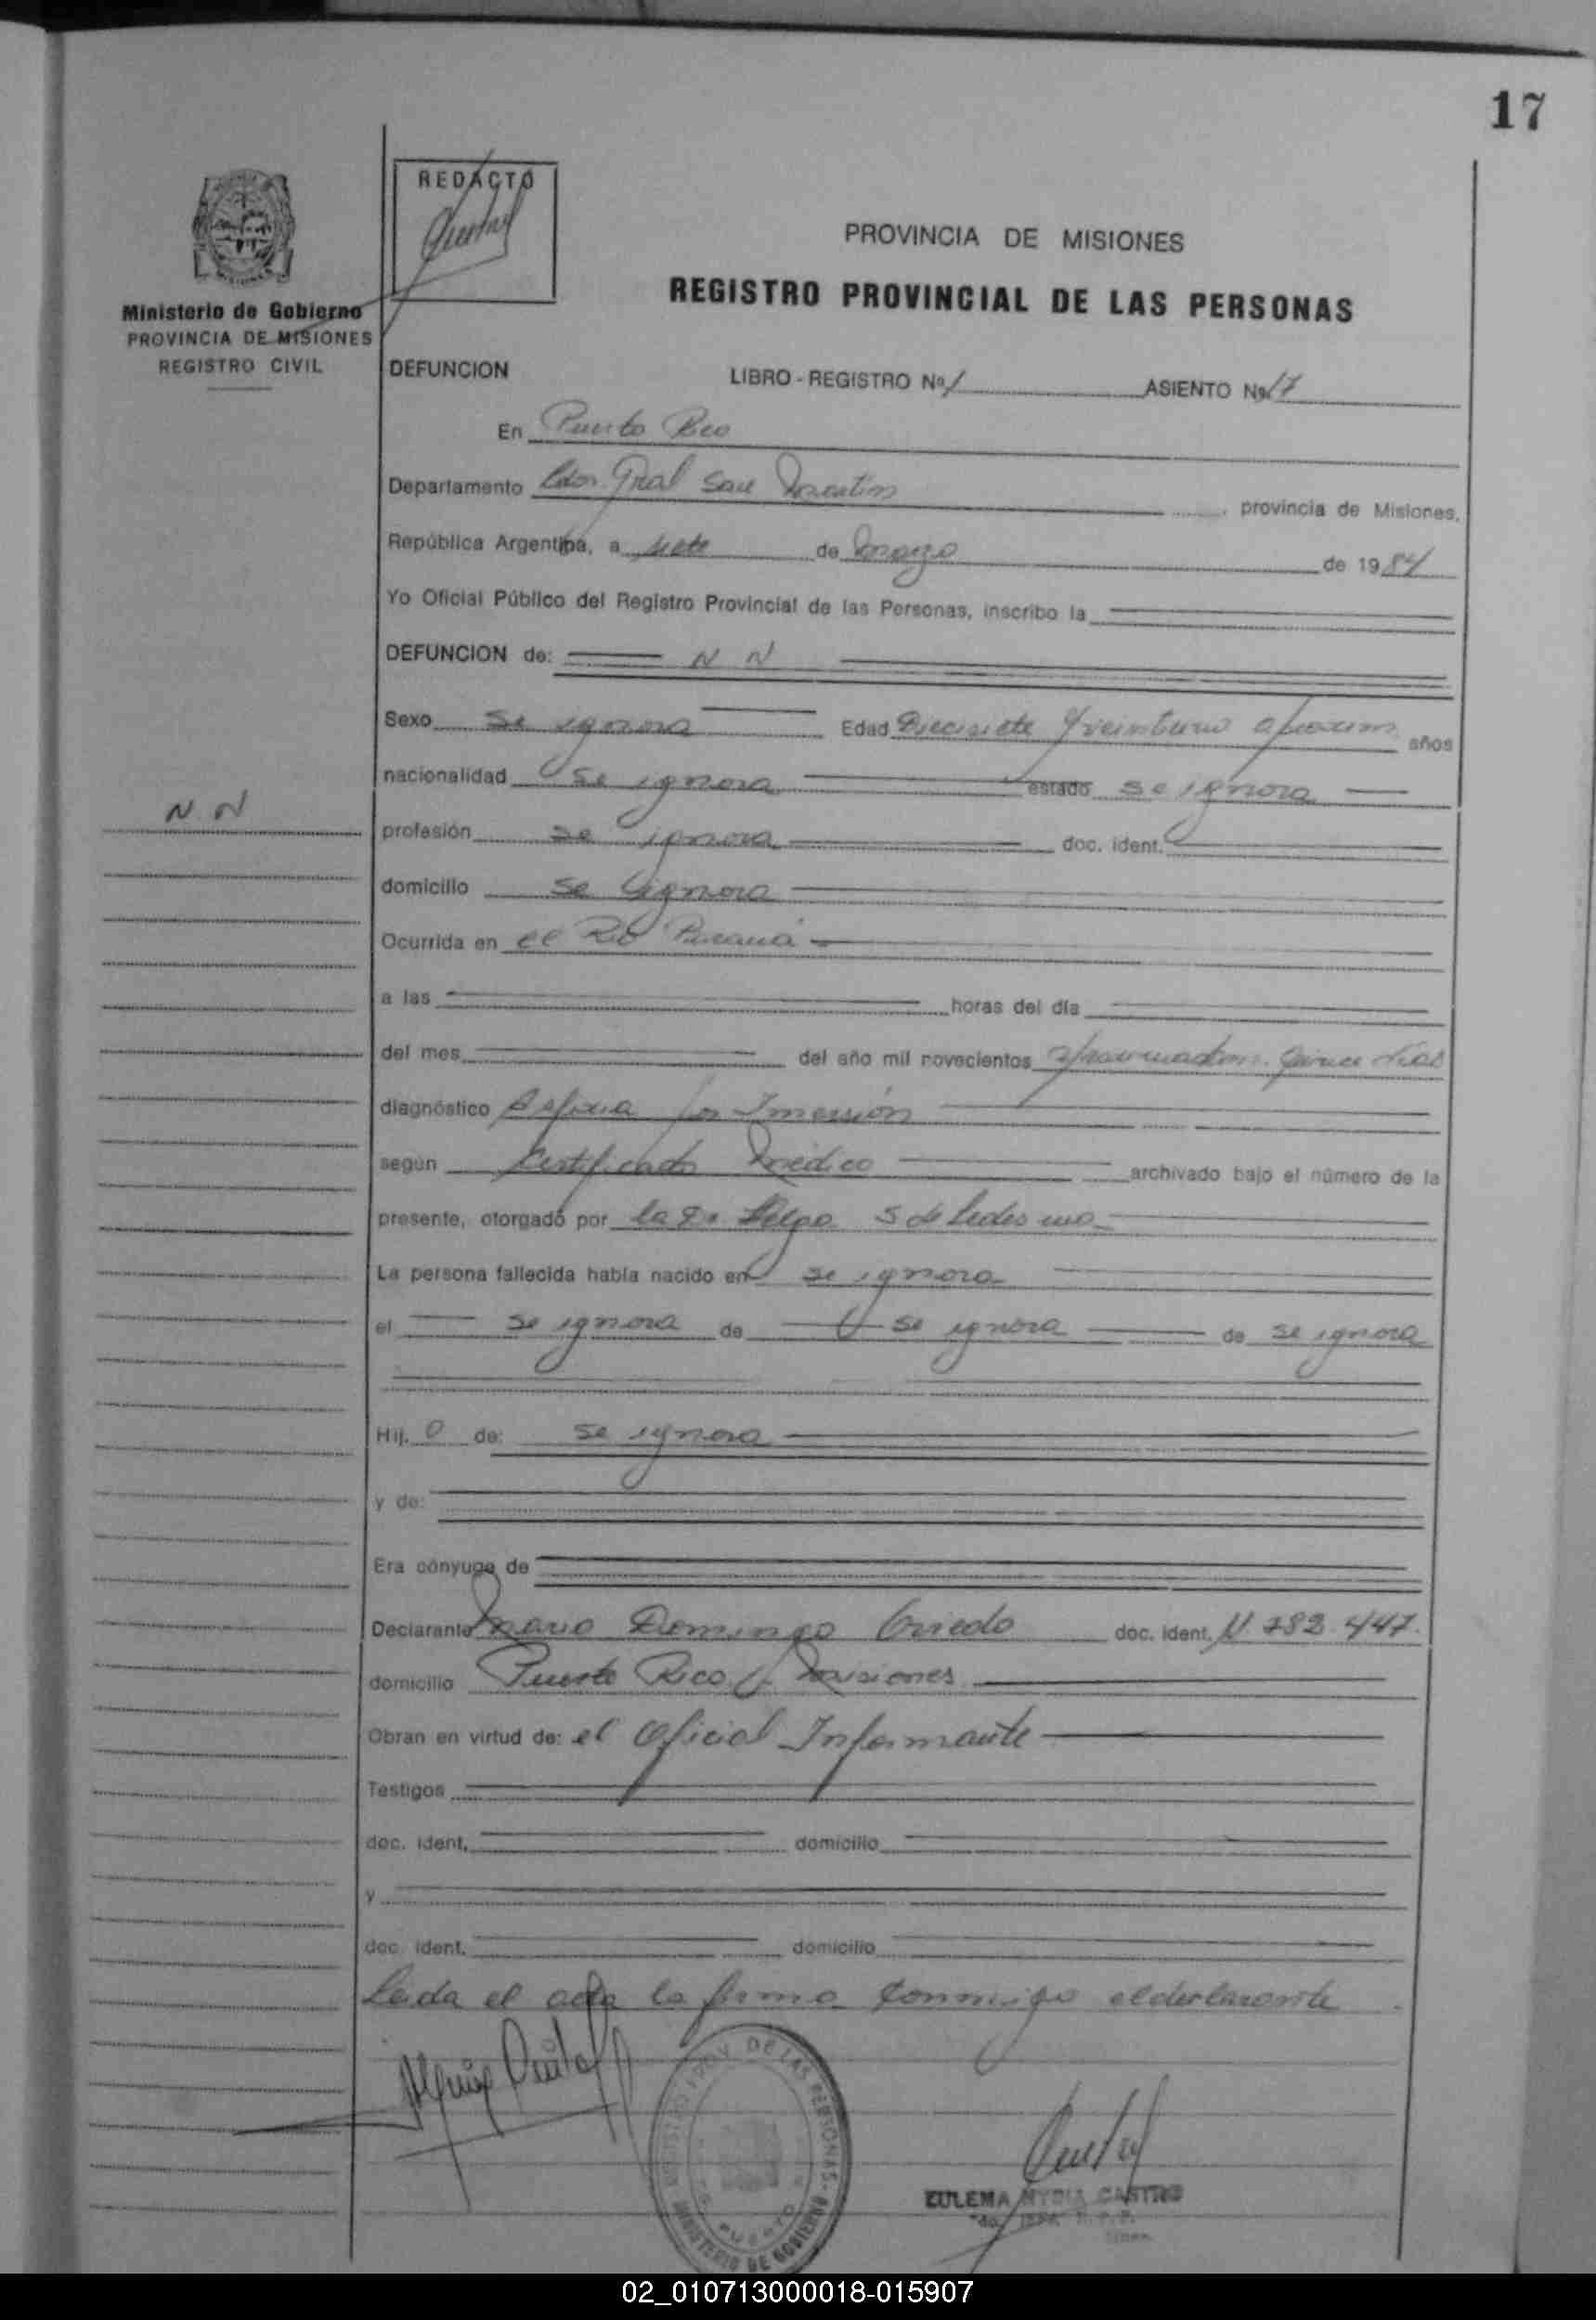 17
REDACTO
PROVINCIA DE MISIONES
REGISTRO PROVINCIAL DE LAS PERSONAS
Ministerio de Gobierno
PROVINCIA DE MISIONES
REGISTRO CIVIL
DEFUNCION LIBRO - REGISTRO Nº 1 ASIENTO Nº 17
En Puerto Rico
Departamento Ldor. Gral San Martin provincia de Misiones,
República Argentina, a siete de marzo de 1984
Yo Oficial Público del Registro Provincial de las Personas, inscribo la
DEFUNCION de: N N
Sexo se ignora Edad Diecisiete y veintiuno aproxim años
nacionalidad se ignora estado se ignora
N N
profesión se ignora doc. ident.
domicilio se ignora
Ocurrida en el Rio Paraná
a las horas del día
del mes del año mil novecientos aproximadam. quince dias
diagnóstico Asfixia por Inmersión
según Certificado Médico archivado bajo el número de la
presente, otorgado por la Dra S de Ledesma
La persona fallecida había nacido en se ignora
el se ignora de se ignora de se ignora
Hij. o de: se ignora
y de:
Era cónyuge de
Declarante Mario Domingo Oviedo doc. ident. 11.782.447.
domicilio Puerto Rico, Misiones
Obran en virtud de: el Oficial Informante
Testigos
doc. ident. domicilio
y
doc. ident. domicilio
Leida el acta la firma conmigo el declarante
REGISTRO PROV. DE LAS PERSONAS - MINISTERIO DE GOBIERNO
PUERTO
EULEMA NYDIA CASTRO
02_010713000018-015907